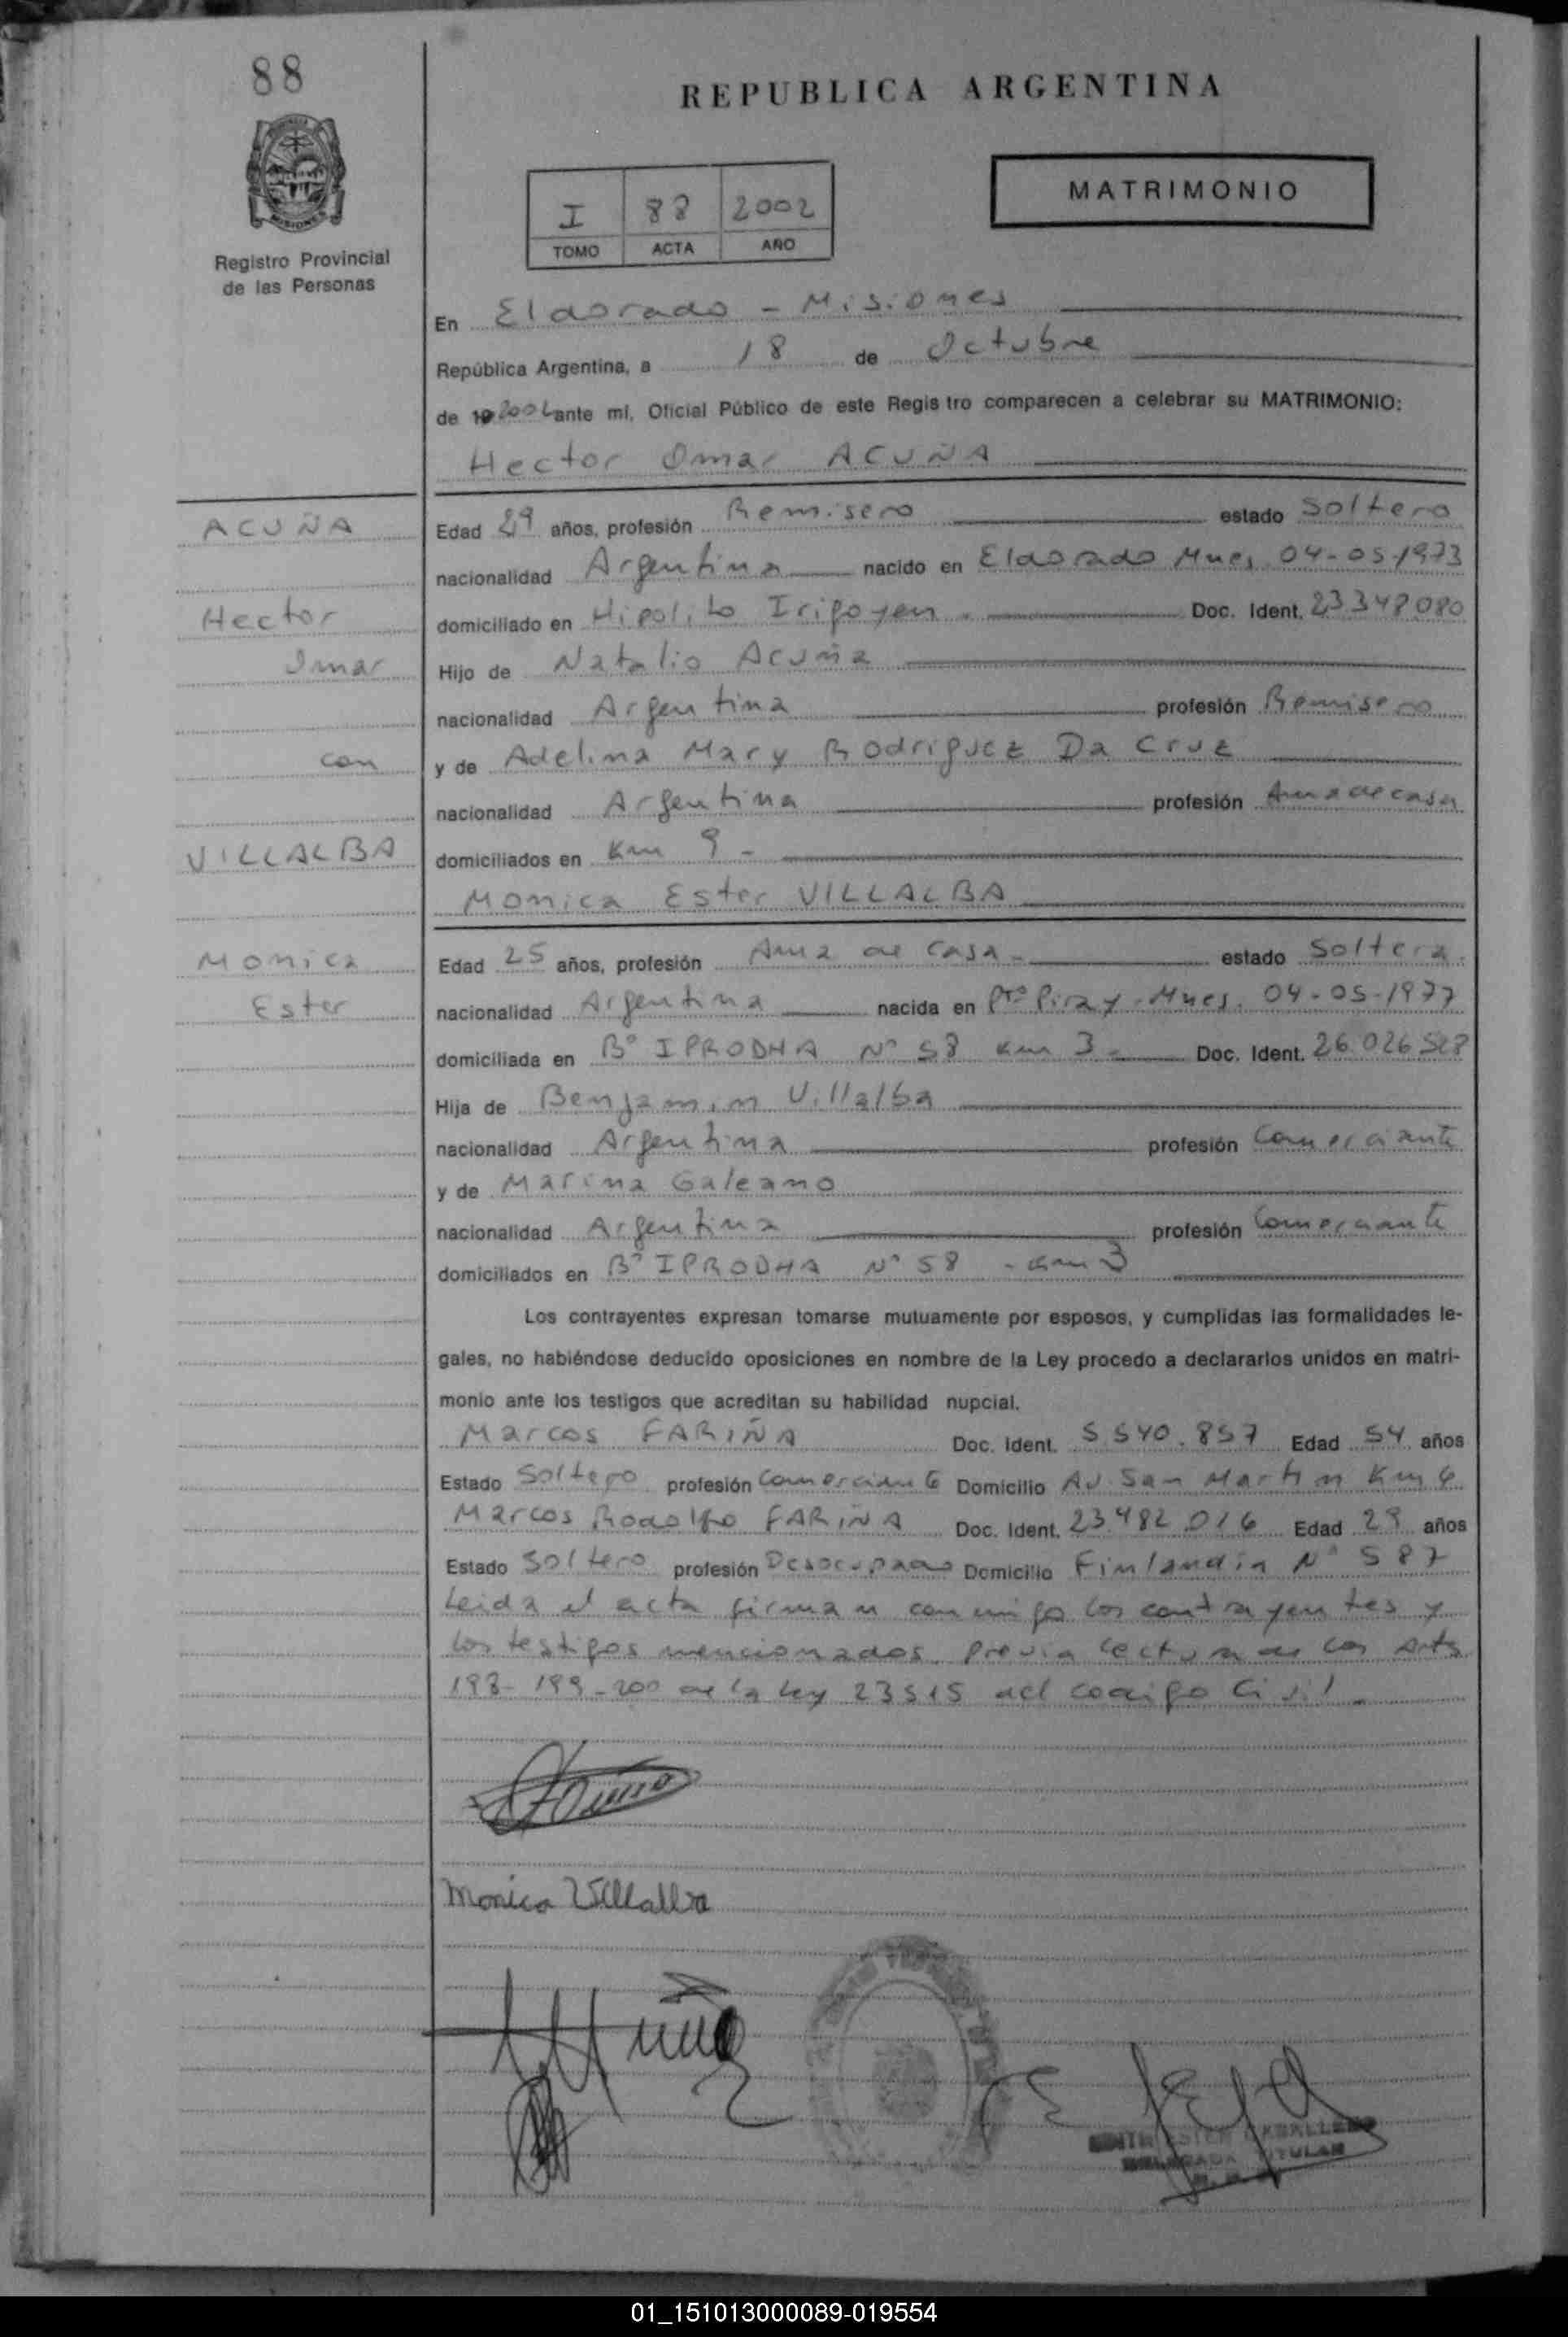 88
REPUBLICA ARGENTINA
MATRIMONIO
I 88 2002
TOMO ACTA AÑO
Registro Provincial
de las Personas
En Eldorado - Misiones
República Argentina, a 18 de Octubre
de 19 2002 ante mí, Oficial Público de este Registro comparecen a celebrar su MATRIMONIO:
Hector Omar ACUÑA
ACUÑA
Hector
Omar
con
VILLALBA
Monica
Ester
Edad 29 años, profesión Remisero estado Soltero
nacionalidad Argentina nacido en Eldorado Mnes 04-05-1973
domiciliado en Hipolito Irigoyen. Doc. Ident. 23.348.080
Hijo de Natalio Acuña
nacionalidad Argentina profesión Remisero
y de Adelina Mary Rodriguez Da Cruz
nacionalidad Argentina profesión Ama de casa
domiciliados en Km 9 -
Monica Ester VILLALBA
Edad 25 años, profesión Ama de Casa - estado Soltera.
nacionalidad Argentina nacida en Pto Piray - Mnes. 04-05-1977
domiciliada en B° IPRODHA N° 58 Km 3 - Doc. Ident. 26.026.528
Hija de Benjamin Villalba
nacionalidad Argentina profesión Comerciante
y de Marina Galeano
nacionalidad Argentina profesión Comerciante
domiciliados en B° IPRODHA N° 58 - Km 3
Los contrayentes expresan tomarse mutuamente por esposos, y cumplidas las formalidades le-
gales, no habiéndose deducido oposiciones en nombre de la Ley procedo a declararlos unidos en matri-
monio ante los testigos que acreditan su habilidad nupcial.
Marcos FARIÑA Doc. Ident. 5.540.857 Edad 54 años
Estado Soltero profesión Comerciante Domicilio Av San Martin Km 6
Marcos Rodolfo FARIÑA Doc. Ident. 23.482.016 Edad 29 años
Estado Soltero profesión Desocupado Domicilio Finlandia N° 587
Leida el acta firman conmigo los contrayentes y
los testigos mencionados. Previa lectura de los Arts
198-199-200 de la Ley 23515 del Codigo Civil -
Monica Villalba
CABALLERO
DELEGADA TITULAR
01_151013000089-019554